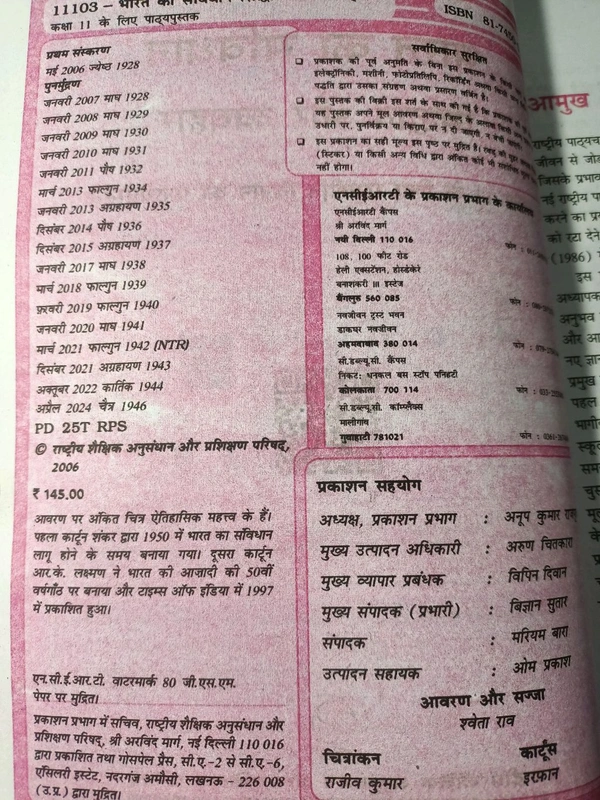 11103 – भारत का संविधान
कक्षा 11 के लिए पाठ्यपुस्तक
ISBN 81-745
प्रथम संस्करण
मई 2006 ज्येष्ठ 1928
पुनर्मुद्रण
जनवरी 2007 माघ 1928
जनवरी 2008 माघ 1929
जनवरी 2009 माघ 1930
जनवरी 2010 माघ 1931
जनवरी 2011 पौष 1932
मार्च 2013 फाल्गुन 1934
जनवरी 2013 अग्रहायण 1935
दिसंबर 2014 पौष 1936
दिसंबर 2015 अग्रहायण 1937
जनवरी 2017 माघ 1938
मार्च 2018 फाल्गुन 1939
फ़रवरी 2019 फाल्गुन 1940
जनवरी 2020 माघ 1941
मार्च 2021 फाल्गुन 1942 (NTR)
दिसंबर 2021 अग्रहायण 1943
अक्तूबर 2022 कार्तिक 1944
अप्रैल 2024 चैत्र 1946
PD 25T RPS
© राष्ट्रीय शैक्षिक अनुसंधान और प्रशिक्षण परिषद्,
2006
₹ 145.00
आवरण पर अंकित चित्र ऐतिहासिक महत्त्व के हैं।
पहला कार्टून शंकर द्वारा 1950 में भारत का संविधान
लागू होने के समय बनाया गया। दूसरा कार्टून
आर.के. लक्ष्मण ने भारत की आज़ादी की 50वीं
वर्षगाँठ पर बनाया और टाइम्स ऑफ इंडिया में 1997
में प्रकाशित हुआ।
एन.सी.ई.आर.टी. वाटरमार्क 80 जी.एस.एम.
पेपर पर मुद्रित।
प्रकाशन प्रभाग में सचिव, राष्ट्रीय शैक्षिक अनुसंधान और
प्रशिक्षण परिषद्, श्री अरविंद मार्ग, नई दिल्ली 110 016
द्वारा प्रकाशित तथा गोसपेल प्रैस, सी.ए.-2 से सी.ए.-6,
एँसिलरी इस्टेट, नदरगंज अमौसी, लखनऊ - 226 008
(उ.प्र.) द्वारा मुद्रित।
सर्वाधिकार सुरक्षित
❑ प्रकाशक की पूर्व अनुमति के बिना इस प्रकाशन के किसी
इलेक्ट्रॉनिकी, मशीनी, फोटोप्रतिलिपि, रिकॉर्डिंग अथवा किसी
पद्धति द्वारा उसका संग्रहण अथवा प्रसारण वर्जित है।
❑ इस पुस्तक की बिक्री इस शर्त के साथ की गई है कि प्रकाशक की
यह पुस्तक अपने मूल आवरण अथवा जिल्द के अलावा किसी
उधारी पर, पुनर्विक्रय या किराए पर न दी जाएगी, न बेची जाएगी।
❑ इस प्रकाशन का सही मूल्य इस पृष्ठ पर मुद्रित है। रबड़ की मुहर
(स्टिकर) या किसी अन्य विधि द्वारा अंकित कोई भी
नहीं होगा।
एनसीईआरटी के प्रकाशन प्रभाग के कार्यालय
एनसीईआरटी कैंपस
श्री अरविंद मार्ग
नयी दिल्ली 110 016
फोन :
108, 100 फीट रोड
हेली एक्सटेंशन, होस्डेकेरे
बनाशंकरी III इस्टेज
बैंगलुरु 560 085
फोन :
नवजीवन ट्रस्ट भवन
डाकघर नवजीवन
अहमदाबाद 380 014
फोन :
सी.डब्ल्यू.सी. कैंपस
निकट: धनकल बस स्टॉप पनिहटी
कोलकाता 700 114
फोन :
सी.डब्ल्यू.सी. कॉम्प्लैक्स
मालीगांव
गुवाहाटी 781021
फोन :
प्रकाशन सहयोग
अध्यक्ष, प्रकाशन प्रभाग : अनूप कुमार
मुख्य उत्पादन अधिकारी : अरुण चितकारा
मुख्य व्यापार प्रबंधक : विपिन दिवान
मुख्य संपादक (प्रभारी) : बिज्ञान सुतार
संपादक : मरियम बारा
उत्पादन सहायक : ओम प्रकाश
आवरण और सज्जा
श्वेता राव
चित्रांकन
राजीव कुमार
कार्टूंस
इरफ़ान
आमुख
राष्ट्रीय पाठ्यच
जीवन से जोड़
जिसके प्रभाव
नई राष्ट्रीय पा
करने का प्र
को रटा देने
(1986)
इस
अध्यापक
अनुभव
और आ
नए ज्ञान
प्रमुख
पहल